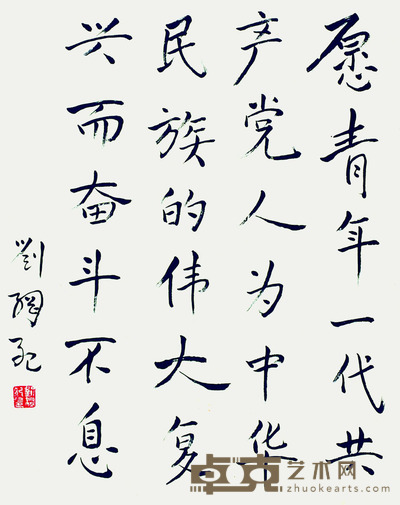 愿青年一代共
产党人为中华
民族的伟大复
兴而奋斗不息
劉綱紀
卓克艺术网
zhuokearts.com